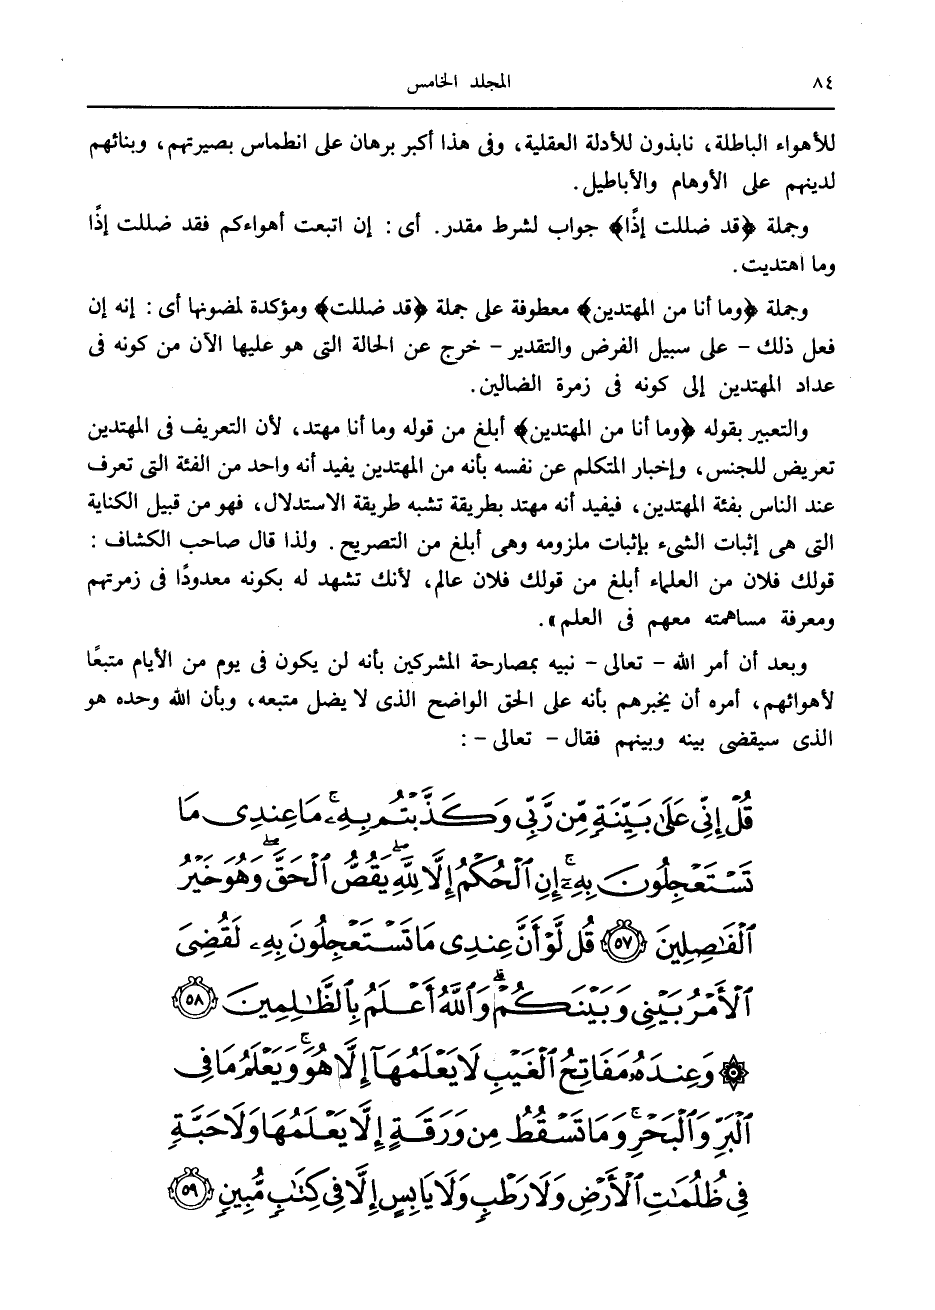 ٨٤ المجلد الخامس
للأهواء الباطلة، نابذون للأدلة العقلية، وفى هذا أكبر برهان على انطماس بصيرتهم، وبنائهم
لدينهم على الأوهام والأباطيل.
وجملة ﴿قد ضللت إذًا﴾ جواب لشرط مقدر. أى: إن اتبعت أهواءكم فقد ضللت إذًا
وما اهتديت.
وجملة ﴿وما أنا من المهتدين﴾ معطوفة على جملة ﴿قد ضللت﴾ ومؤكدة لمضونها أى: إنه إن
فعل ذلك - على سبيل الفرض والتقدير - خرج عن الحالة التى هو عليها الآن من كونه فى
عداد المهتدين إلى كونه فى زمرة الضالين.
والتعبير بقوله ﴿وما أنا من المهتدين﴾ أبلغ من قوله وما أنا مهتد، لأن التعريف فى المهتدين
تعريض للجنس، وإخبار المتكلم عن نفسه بأنه من المهتدين يفيد أنه واحد من الفئة التى تعرف
عند الناس بفئة المهتدين، فيفيد أنه مهتد بطريقة تشبه طريقة الاستدلال، فهو من قبيل الكناية
التى هى إثبات الشىء بإثبات ملزومه وهى أبلغ من التصريح. ولذا قال صاحب الكشاف:
قولك فلان من العلماء أبلغ من قولك فلان عالم، لأنك تشهد له بكونه معدودًا فى زمرتهم
ومعرفة مساهمته معهم فى العلم».
وبعد أن أمر الله - تعالى - نبيه بمصارحة المشركين بأنه لن يكون فى يوم من الأيام متبعًا
لأهوائهم، أمره أن يخبرهم بأنه على الحق الواضح الذى لا يضل متبعه، وبأن الله وحده هو
الذى سيقضى بينه وبينهم فقال - تعالى -:
قُلْ إِنِّى عَلَىٰ بَيِّنَةٍ مِّن رَّبِّى وَكَذَّبْتُم بِهِۦ ۚ مَا عِندِى مَا
تَسْتَعْجِلُونَ بِهِۦٓ ۚ إِنِ ٱلْحُكْمُ إِلَّا لِلَّهِ ۖ يَقُصُّ ٱلْحَقَّ ۖ وَهُوَ خَيْرُ
ٱلْفَٰصِلِينَ ﴿٥٧﴾ قُل لَّوْ أَنَّ عِندِى مَا تَسْتَعْجِلُونَ بِهِۦ لَقُضِىَ
ٱلْأَمْرُ بَيْنِى وَبَيْنَكُمْ ۗ وَٱللَّهُ أَعْلَمُ بِٱلظَّٰلِمِينَ ﴿٥٨﴾
۞ وَعِندَهُۥ مَفَاتِحُ ٱلْغَيْبِ لَا يَعْلَمُهَآ إِلَّا هُوَ ۚ وَيَعْلَمُ مَا فِى
ٱلْبَرِّ وَٱلْبَحْرِ ۚ وَمَا تَسْقُطُ مِن وَرَقَةٍ إِلَّا يَعْلَمُهَا وَلَا حَبَّةٍ
فِى ظُلُمَٰتِ ٱلْأَرْضِ وَلَا رَطْبٍ وَلَا يَابِسٍ إِلَّا فِى كِتَٰبٍ مُّبِينٍ ﴿٥٩﴾